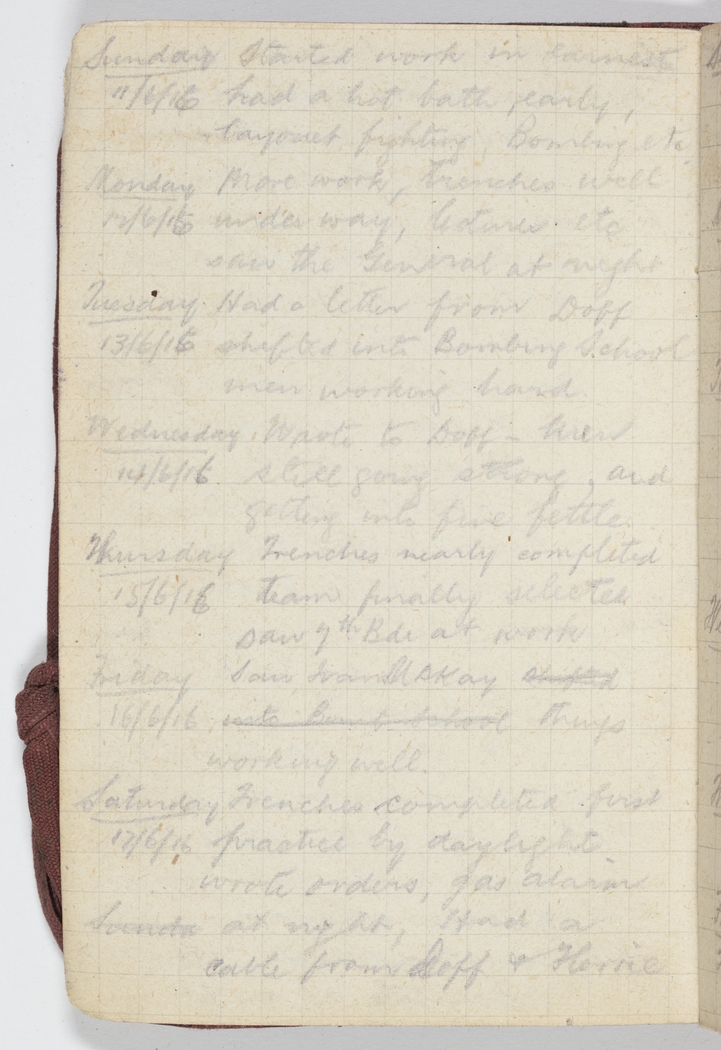 Sunday Started work in earnest
11/6/16 had a hot bath, early,
bayonet fighting, Bombing etc
Monday More work, trenches well
12/6/16 under way, lectures etc
saw the General at night
Tuesday Had a letter from Doff
13/6/16 shifted into Bombing School
men working hard.
Wednesday. Wrote to Doff - Men
14/6/16 still going strong, and
getting into fine fettle.
Thursday Trenches nearly completed
15/6/16 team finally selected
saw 7th Bde at work
Friday Saw McKay shifted
16/6/16 into Bomb School things
working well.
Saturday Trenches completed first
17/6/16 practice by daylight
wrote orders, gas alarm
Sunda at night, Had a
cable from Doff &